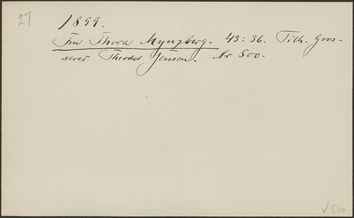 27
1899.
Fru Thora Myngberg. 43:36. Tilh. Gros-
serer Theodor Jensen. Nr 800.